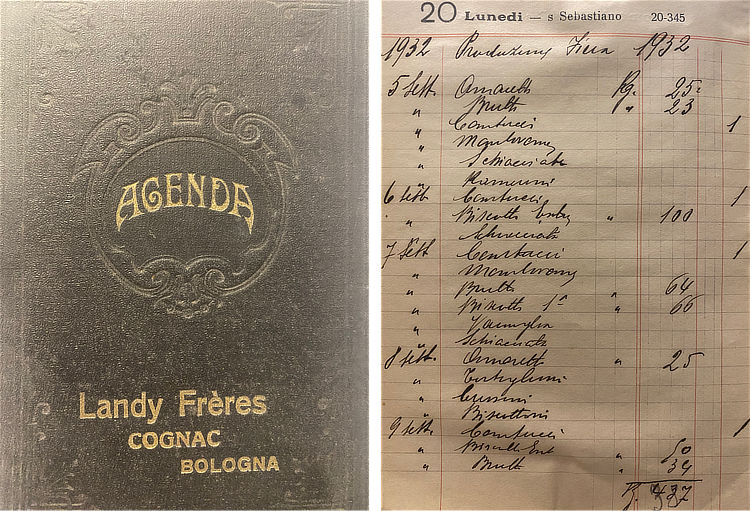 AGENDA
Landy Frères
COGNAC
BOLOGNA
20 Lunedi — s Sebastiano 20-345
1932 Produzione Fiera 1932
5 Sett. Amaretti Kg. 25
" Brutti " 23
" Cantucci 1
" Mantovane
" Schiacciate
Ramerini
6 Sett. Cantucci 1
" Biscotti " 100
Schiacciate
7 Sett Cantucci 1
" Mantovane
" Brutti " 64
" Biscotti 1ª " 66
" Vaniglia
" Schiacciate
8 Sett. Amaretti " 25
"
"
" Biscottini
9 Sett. Cantucci 1
" Biscotti " 50
" Brutti " 34
K. 437